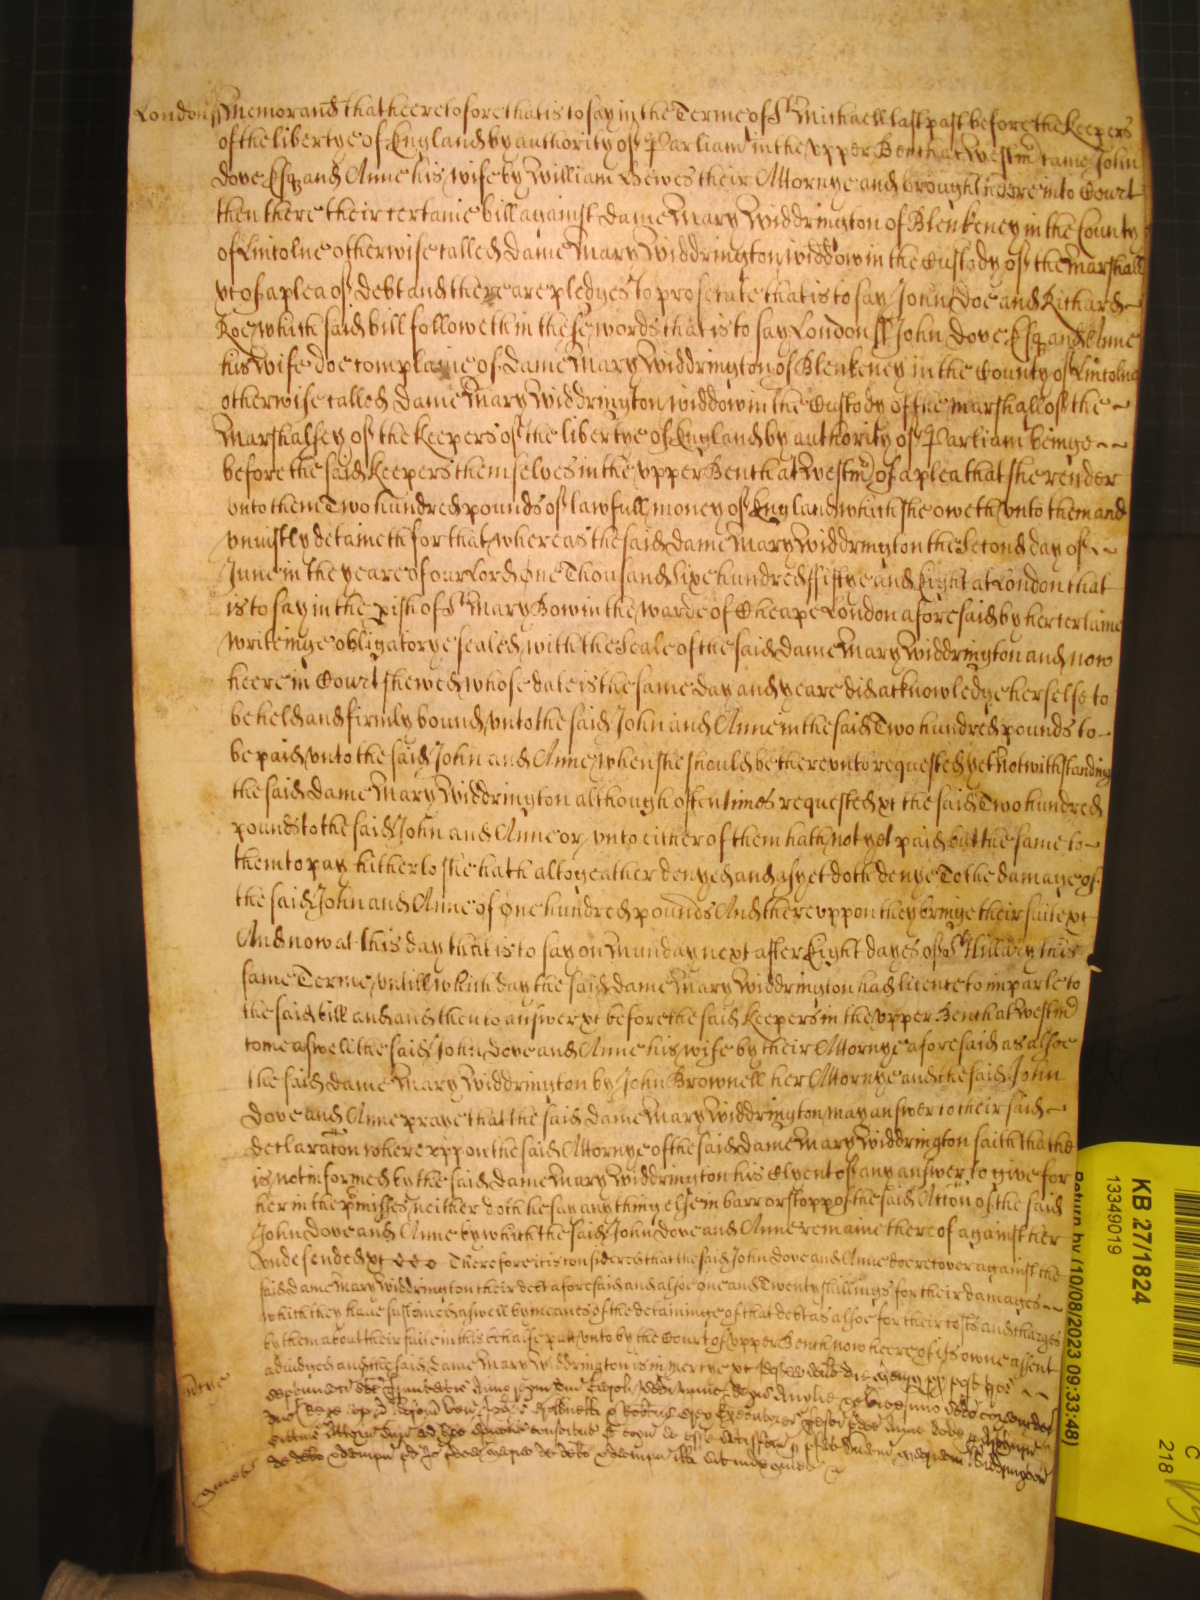 London ss Memorand that heeretofore that is to say in the Terme of St Michaell last past before the Keepers
of the libertye of England by authority of Parliamt in the upper Bench at Westmr came John
Dove Esqr and Anne his wife by William Hewes their Attornye and brought heere into Court
then there their certaine bill against Dame Mary Widdrington of Blenkeney in the County
of Lincolne otherwise called Dame Mary Widdrington widdow in the Custody of the Marshall
&c of a plea of debt and there are pledges to prosecute that is to say John Doe and Richard
Roe which said bill followeth in these words that is to say London ss John Dove Esqr and Anne
his wife doe complaine of Dame Mary Widdrington of Blenkeney in the County of Lincolne
otherwise called Dame Mary Widdrington widdow in the Custody of the Marshall of the
Marshalsey of the Keepers of the libertye of England by authority of Parliam beinge
before the said Keepers themselves in the upper Bench at Westmr of a plea that she render
unto them Two hundred pounds of lawfull money of England which she oweth unto them and
uniustly detaineth for that whereas the said Dame Mary Widdrington the Second day of
June in the yeare of our Lord One Thousand sixe hundred fiftye and Eight at London that
is to say in the pish of St Mary Bow in the warde of Cheape London aforesaid by her certaine
writeinge obligatorye sealed with the Seale of the said Dame Mary Widdrington and now
heere in Court shewed whose date is the same day and yeare did acknowledge her selfe to
be held and firmly bound unto the said John and Anne in the said Two hundred pounds to
be paid unto the said John and Anne when she should be thereunto requested yet notwithstanding
the said Dame Mary Widdrington although oftentimes requested &c the said Two hundred
pounds to the said John and Anne or unto either of them hath not yet paid but the same to
them to pay hitherto she hath altogeather denyed and as yet doth denye To the damage of
the said John and Anne of One hundred pounds And thereuppon they bringe their suite &c
And now at this day that is to say on Munday next after Eight dayes of St Hillary this
same Terme untill which day the said Dame Mary Widdrington had licence to imparle to
the said bill and and then to answer &c before the said Keepers in the upper Bench at Westmr
come aswell the said John Dove and Anne his wife by their Attornye aforesaid as alsoe
the said Dame Mary Widdrington by John Brownell her Attornye and the said John
Dove and Anne praye that the said Dame Mary Widdrington may answer to their said
declaracon whereuppon the said Attornye of the said Dame Mary Widdrington saith that he
is not informed by the said Dame Mary Widdrington his Clyent of any answer to give for
her in the pmisses neither doth he say any thing else in barr or stopp of the said Accon of the said
John Dove and Anne by which the said John Dove and Anne remaine thereof against her
undefended &c Therefore it is considered that the said John Dove and Anne doe recover against the
said Dame Mary Widdrington their debt aforesaid and alsoe one and Twenty shillings for their damages
which they have susteined aswell by meanes of the detaininge of that debt as alsoe for their costs and charges
by them about their suite in this behalfe putt unto by the Court of upper Bench now heere of its owne assent
adiudged and the said Dame Mary Widdrington is in mercye &c
mcye
KB 27/1824
13349019
Return by (10/08/2023 09:33:48)
C
218